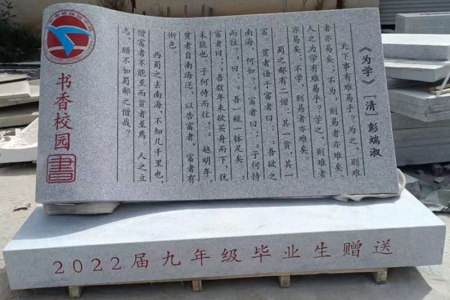 《为学》 [清] 彭端淑
天下事有难易乎？为之，则难
者亦易矣；不为，则易者亦难矣。
人之为学有难易乎？学之，则难者
亦易矣；不学，则易者亦难矣。
蜀之鄙有二僧，其一贫，其一
富。贫者语于富者曰：“吾欲之
南海，何如？”富者曰：“子何恃
而往？”曰：“吾一瓶一钵足矣。”
富者曰：“吾数年来欲买舟而下，犹
未能也。子何恃而往！”越明年，
贫者自南海还，以告富者，富者有
惭色。
西蜀之去南海，不知几千里也，
僧富者不能至而贫者至焉。人之立
志，顾不如蜀鄙之僧哉？
书香校园
書
2022届九年级毕业生赠送